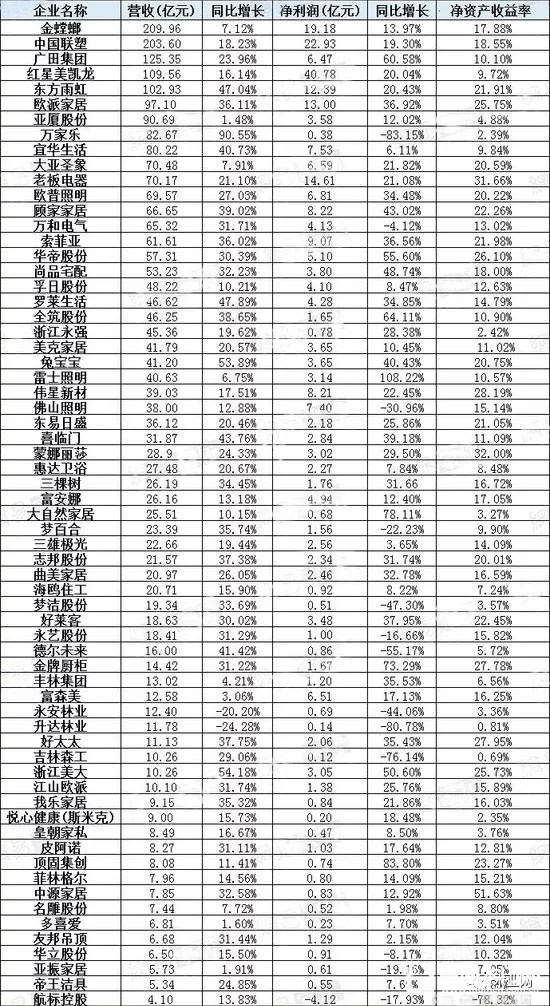 企业名称 营收(亿元) 同比增长 净利润(亿元) 同比增长 净资产收益率
金螳螂 209.96 7.12% 19.18 13.97% 17.88%
中国联塑 203.60 18.23% 22.93 19.30% 18.55%
广田集团 125.35 23.96% 6.47 60.58% 10.10%
红星美凯龙 109.56 16.14% 40.78 20.04% 9.72%
东方雨虹 102.93 47.04% 12.39 20.43% 21.91%
欧派家居 97.10 36.11% 13.00 36.92% 25.75%
亚厦股份 90.69 1.48% 3.58 12.02% 4.88%
万家乐 82.67 90.55% 0.38 -83.15% 2.39%
宜华生活 80.22 40.73% 7.53 6.11% 9.84%
大亚圣象 70.48 7.91% 6.59 21.82% 20.59%
老板电器 70.17 21.10% 14.61 21.08% 31.66%
欧普照明 69.57 27.03% 6.81 34.48% 20.22%
顾家家居 66.65 39.02% 8.22 43.02% 22.26%
万和电气 65.32 31.71% 4.13 -4.12% 13.02%
索菲亚 61.61 36.02% 9.07 36.56% 21.98%
华帝股份 57.31 30.39% 5.10 55.60% 26.10%
尚品宅配 53.23 32.23% 3.80 48.74% 18.00%
孚日股份 48.22 10.21% 4.10 8.47% 12.63%
罗莱生活 46.62 47.89% 4.28 34.85% 14.79%
全筑股份 46.25 38.65% 1.65 64.11% 10.90%
浙江永强 45.36 19.62% 0.78 28.38% 2.42%
美克家居 41.79 20.57% 3.65 10.45% 11.02%
兔宝宝 41.20 53.89% 3.65 40.43% 20.75%
雷士照明 40.63 6.75% 3.14 108.22% 10.57%
伟星新材 39.03 17.51% 8.21 22.45% 28.19%
佛山照明 38.00 12.88% 7.40 -30.96% 15.14%
东易日盛 36.12 20.46% 2.18 25.86% 21.05%
喜临门 31.87 43.76% 2.84 39.18% 11.09%
蒙娜丽莎 28.9 24.33% 3.02 29.50% 32.00%
惠达卫浴 27.48 20.67% 2.27 7.84% 8.48%
三棵树 26.19 34.45% 1.76 31.66 16.72%
富安娜 26.16 13.18% 4.94 12.40% 17.05%
大自然家居 25.51 10.15% 0.68 78.11% 3.27%
梦百合 23.39 35.74% 1.56 -22.23% 9.90%
三雄极光 22.66 19.44% 2.56 3.65% 14.09%
志邦股份 21.57 37.38% 2.34 31.74% 20.01%
曲美家居 20.97 26.05% 2.46 32.78% 16.59%
海鸥住工 20.71 15.90% 0.92 8.22% 7.24%
梦洁股份 19.34 33.69% 0.51 -47.30% 3.57%
好莱客 18.63 30.02% 3.48 37.95% 22.45%
永艺股份 18.41 31.29% 1.00 -16.66% 15.82%
德尔未来 16.00 41.42% 0.86 -55.17% 5.72%
金牌厨柜 14.42 31.22% 1.67 73.29% 27.78%
丰林集团 13.02 4.21% 1.20 35.53% 6.56%
富森美 12.58 3.06% 6.51 17.13% 16.25%
永安林业 12.40 -20.20% 0.69 -44.06% 3.36%
升达林业 11.78 -24.28% 0.14 -80.78% 0.81%
好太太 11.13 37.75% 2.06 35.43% 27.95%
吉林森工 10.26 29.06% 0.12 -76.14% 0.69%
浙江美大 10.26 54.18% 3.05 50.60% 25.73%
江山欧派 10.10 31.74% 1.38 25.76% 15.89%
我乐家居 9.15 35.32% 0.84 21.86% 16.03%
悦心健康(斯米克) 9.00 15.73% 0.20 18.48% 2.35%
皇朝家私 8.49 16.67% 0.47 8.50% 3.76%
皮阿诺 8.27 31.11% 1.03 17.64% 12.81%
顶固集创 8.08 11.41% 0.74 83.80% 23.27%
菲林格尔 7.96 14.56% 0.80 14.09% 15.21%
中源家居 7.85 32.58% 0.83 12.92% 51.63%
名雕股份 7.44 7.72% 0.52 1.98% 8.80%
多喜爱 6.81 1.60% 0.23 7.70% 3.51%
友邦吊顶 6.68 31.44% 1.29 2.15% 12.04%
华立股份 6.50 15.50% 0.91 -8.17% 10.32%
亚振家居 5.73 1.91% 0.61 7.05%
帝王洁具 5.34 24.85% 0.55
航标控股 4.10 13.83% -4.12 -17.93% -78.32%